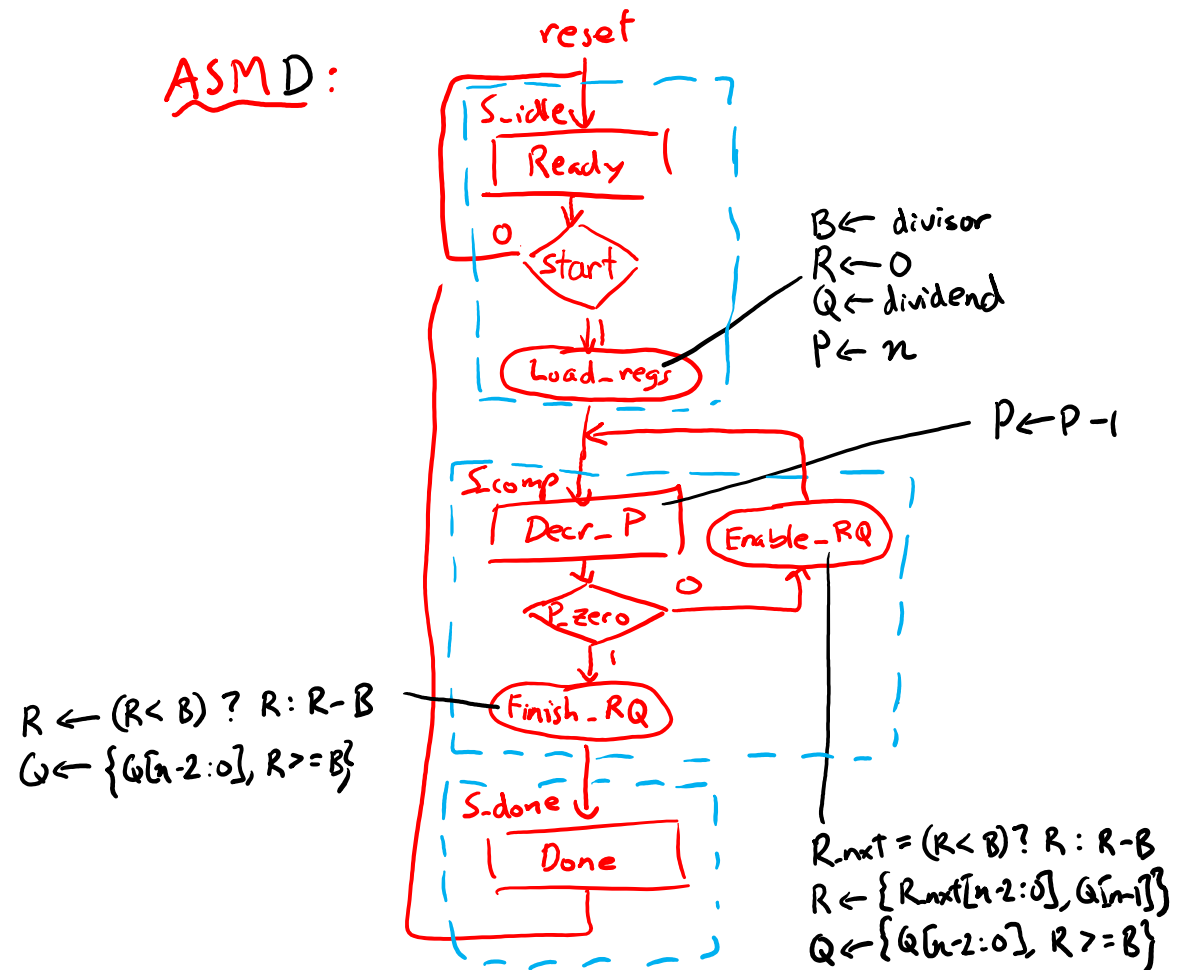 reset
ASMD:
S_idle
Ready
0
start
1
Load_regs
B ← divisor
R ← 0
Q ← dividend
P ← n
P ← P - 1
S_comp
Decr_P
Enable_RQ
0
P_zero
1
Finish_RQ
R ← (R < B) ? R : R - B
Q ← {Q[n-2:0], R >= B}
S_done
Done
R_nxt = (R < B) ? R : R - B
R ← {R_nxt[n-2:0], Q[n-1]}
Q ← {Q[n-2:0], R >= B}